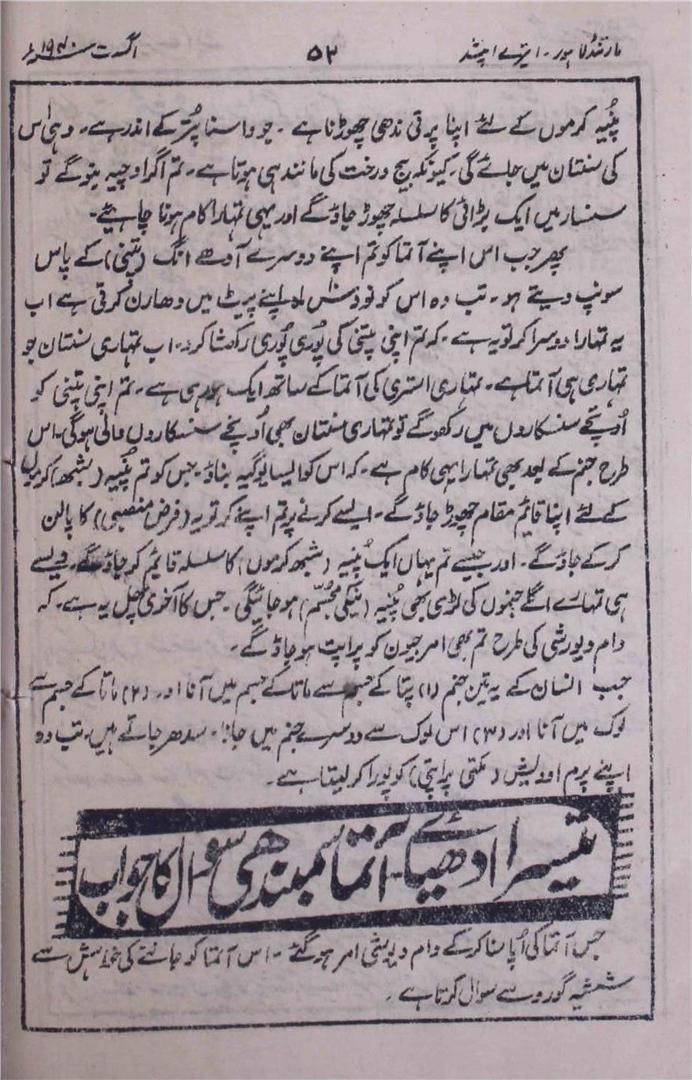 مارتنڈ لاہور - ایترے اپنشد ۵۲ اگست سنہ ۱۹۴۰ء
پُنیہ کرموں کے لئے اپنا پرتی ندھی چھوڑنا ہے۔ جو واسنا پُتر کے اندر ہے۔ وہی اُس
کی سنتان میں جائے گی۔ کیونکہ بیج درخت کی مانند ہی ہوتا ہے۔ تم اگر اوچیہ بنو گے تو
سنسار میں ایک بڑائی کا سلسلہ چھوڑ جاؤ گے اور یہی تمہارا کام ہونا چاہیئے۔
پھر جب اس اپنے آتما کو تم اپنے دوسرے آدھے انگ (پتنی) کے پاس
سونپ دیتے ہو۔ تب وہ اس کو نو دس ماہ اپنے پیٹ میں دھارن کرتی ہے اب
یہ تمہارا دوسرا کرتویہ ہے۔ کہ تم اپنی پتنی کی پُوری پُوری رکھشا کرو۔ اب تمہاری سنتان جو
تمہاری ہی آتما ہے۔ تمہاری استری کی آتما کے ساتھ ایک ہو رہی ہے۔ تم اپنی پتنی کو
اُونچے سنسکاروں میں رکھو گے تو تمہاری سنتان بھی اُونچے سنسکاروں والی ہوگی۔ اس
طرح جنم کے بعد بھی تمہارا یہی کام ہے۔ کہ اس کو ایسا یوگیہ بناؤ۔ جس کو تم پُنیہ (شبھ) کرموں
کے لئے اپنا قائم مقام چھوڑ جاؤ گے۔ ایسے کرنے پر تم اپنے کرتویہ (فرض منصبی) کا پالن
کر کے جاؤ گے۔ اور جیسے تم یہاں ایک پُنیہ (شبھ کرموں) کا سلسلہ قائم کر جاؤ گے۔ ویسے
ہی تمہارے اگلے جنموں کی لڑی بھی پُنیہ (نیکی مجسّم) ہو جائیگی۔ جس کا آخری پھل یہ ہے۔ کہ
وام دیو رشی کی طرح تم بھی امر جیون کو پراپت ہو جاؤ گے۔
جب انسان کے یہ تین جنم (۱) پتا کے جسم سے ماتا کے جسم میں آنا اور (۲) ماتا کے جسم سے
لوک میں آنا اور (۳) اس لوک سے دوسرے جنم میں جانا۔ سدھر جاتے ہیں۔ تب وہ
اپنے پرم اودیش (مکتی پراپتی) کو پورا کر لیتا ہے۔
تیسرا ادھیائے۔ آتما سمبندھی سوال کا جواب
جس آتما کی اُپاسنا کر کے وام دیو رشی امر ہو گئے۔ اس آتما کو جاننے کی خواہش سے
ششیہ گورو سے سوال کرتا ہے۔